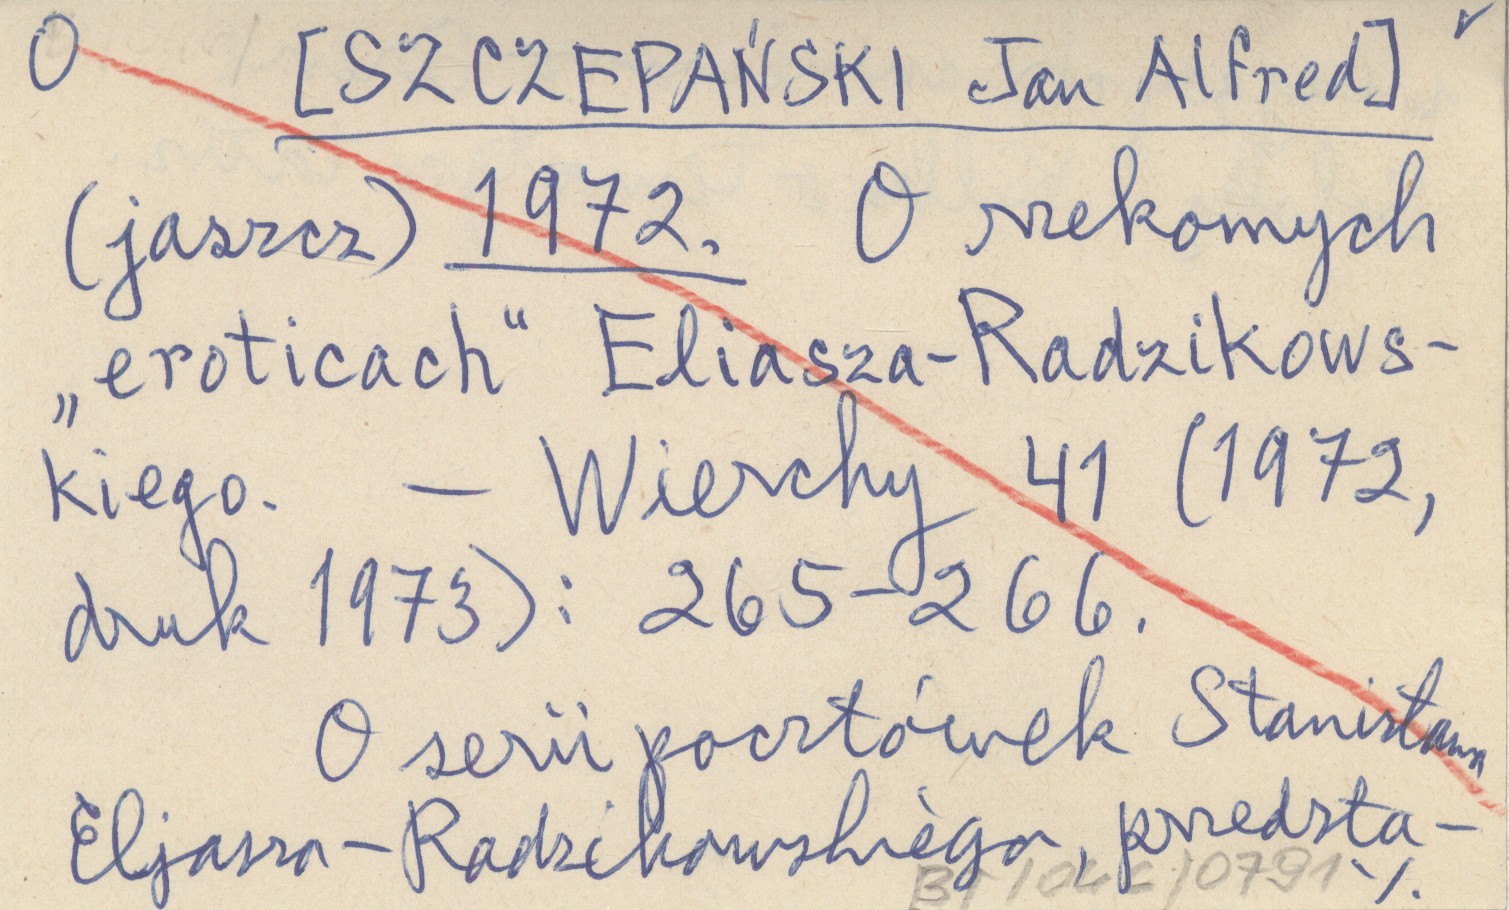 O [SZCZEPAŃSKI Jan Alfred]
(jaszcz) 1972. O rzekomych
„eroticach“ Eliasza-Radzikows-
kiego. — Wierchy 41 (1972,
druk 1973): 265-266.
O serii pocztówek Stanisława
Eljasza-Radzikowskiego, przedsta-
./.